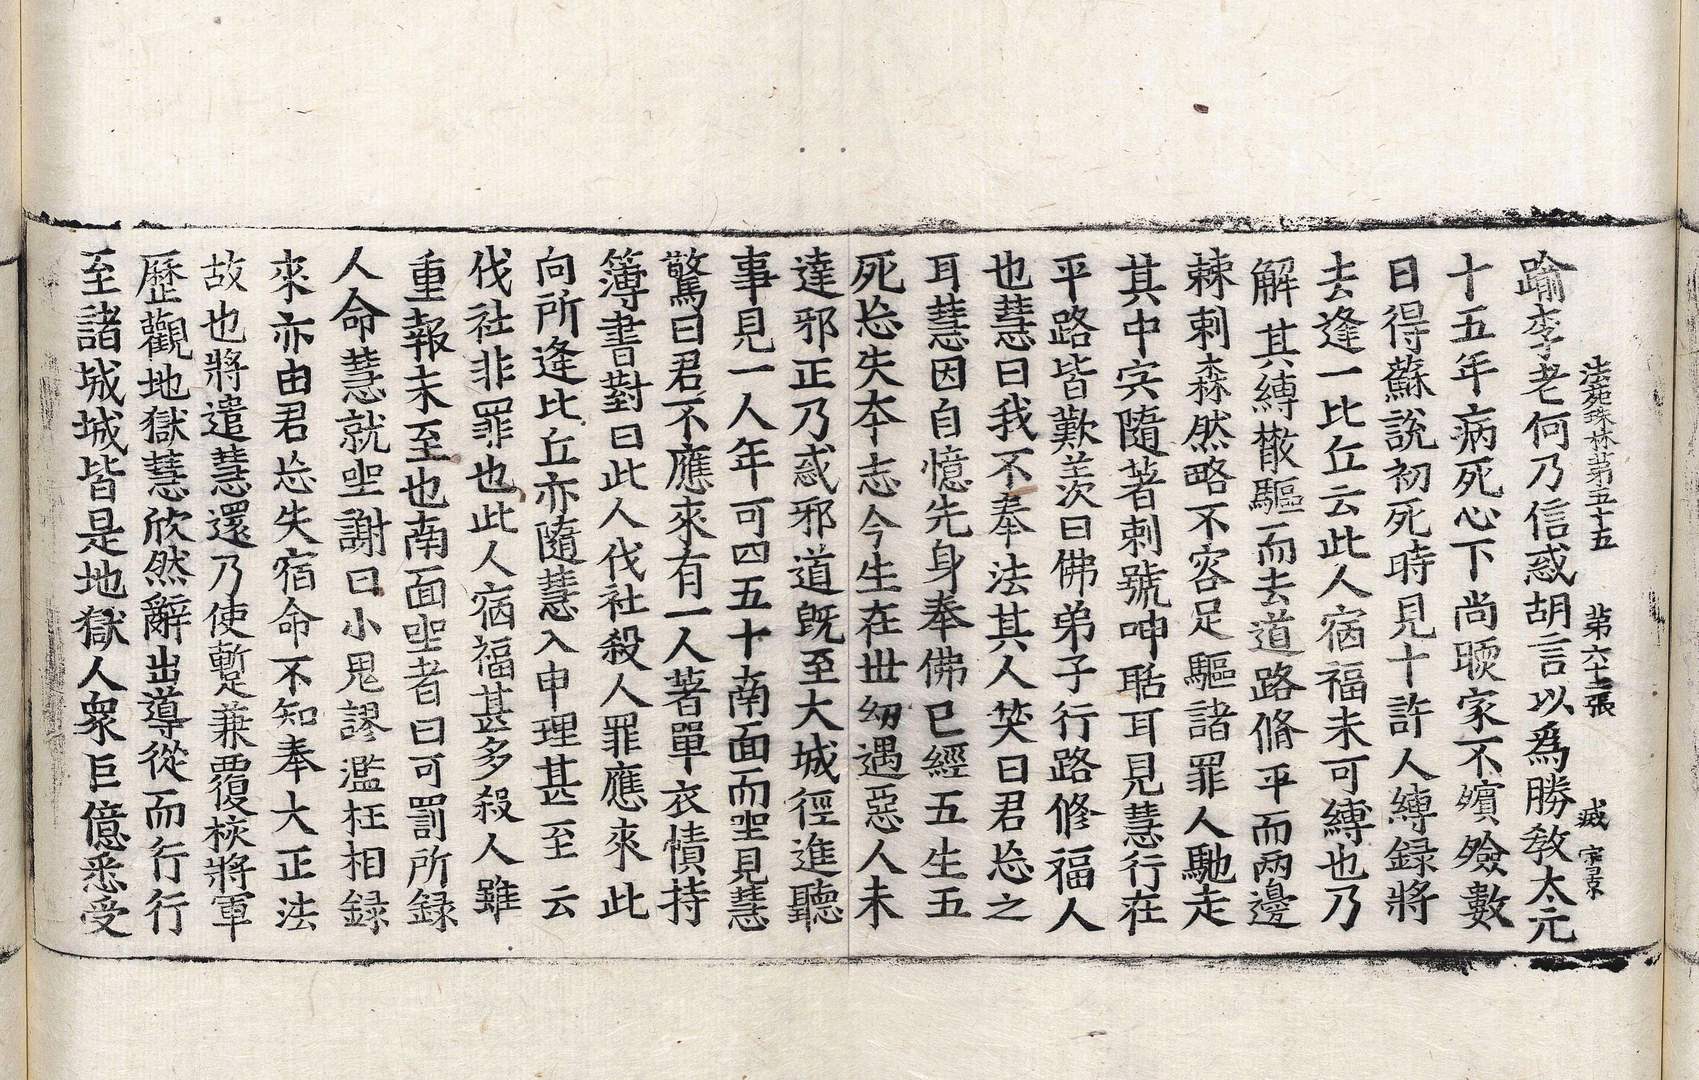 法苑珠林第五十五　第六十二張　㦸
踰李老何乃信惑胡言以爲勝教太元
十五年病死心下尚暖家不殯殮數
日得蘇說初死時見十許人縛録將
去逢一比丘云此人宿福未可縛也乃
解其縛散驅而去道路脩平而兩邊
棘刺森然略不容足驅諸罪人馳走
其中宍隨著刺號呻聒耳見慧行在
平路皆歎羨曰佛弟子行路修福人
也慧曰我不奉法其人笑曰君忘之
耳慧因自憶先身奉佛已經五生五
死忘失本志今生在世幼遇惡人未
達邪正乃惑邪道旣至大城徑進聽
事見一人年可四五十南面而坐見慧
驚曰君不應來有一人著單衣幘持
簿書對曰此人伐社殺人罪應來此
向所逢比丘亦隨慧入申理甚至云
伐社非罪也此人宿福甚多殺人雖
重報未至也南面坐者曰可罰所録
人命慧就坐謝曰小鬼謬濫枉相録
來亦由君忘失宿命不知奉大正法
故也將遣慧還乃使蹔兼覆挍將軍
歷觀地獄慧欣然辭出導從而行行
至諸城城皆是地獄人衆巨億悉受